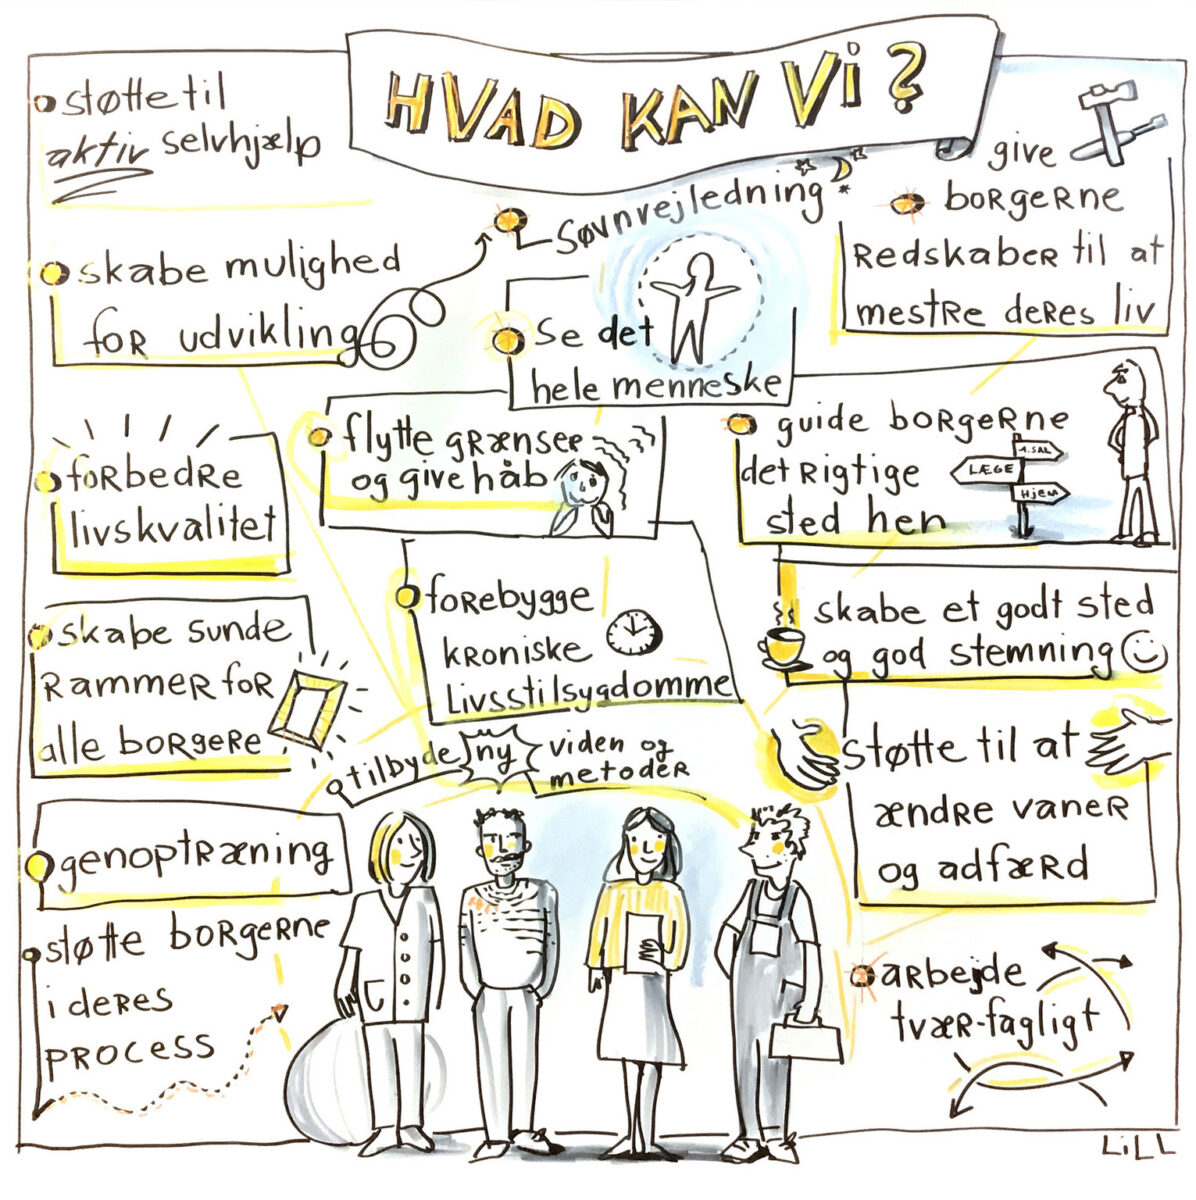 HVAD KAN Vi?
støtte til
aktiv selvhjælp
skabe mulighed
for udvikling
Søvnvejledning
Se det
hele menneske
give
borgerne
redskaber til at
mestre deres liv
forbedre
livskvalitet
flytte grænser
og give håb
guide borgerne
det rigtige
sted hen
1. SAL
LÆGE
HJEM
skabe sunde
rammer for
alle borgere
forebygge
kroniske
livsstilsygdomme
skabe et godt sted
og god stemning
tilbyde ny viden og
metoder
støtte til at
ændre vaner
og adfærd
genoptræning
støtte borgerne
i deres
process
arbejde
tvær-fagligt
LiLL